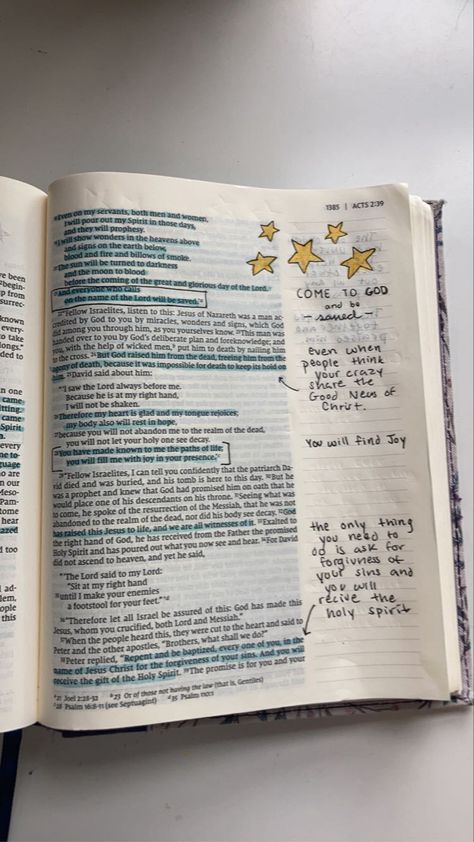 1385 | ACTS 2:39
18Even on my servants, both men and women,
I will pour out my Spirit in those days,
and they will prophesy.
19I will show wonders in the heavens above
and signs on the earth below,
blood and fire and billows of smoke.
20The sun will be turned to darkness
and the moon to blood
before the coming of the great and glorious day of the Lord.
21And everyone who calls
on the name of the Lord will be saved.'
22"Fellow Israelites, listen to this: Jesus of Nazareth was a man ac-
credited by God to you by miracles, wonders and signs, which God
did among you through him, as you yourselves know. 23This man was
handed over to you by God's deliberate plan and foreknowledge; and
you, with the help of wicked men, put him to death by nailing him
to the cross. 24But God raised him from the dead, freeing him from the
agony of death, because it was impossible for death to keep its hold on
him. 25David said about him:
"'I saw the Lord always before me.
Because he is at my right hand,
I will not be shaken.
26Therefore my heart is glad and my tongue rejoices;
my body also will rest in hope,
27because you will not abandon me to the realm of the dead,
you will not let your holy one see decay.
28You have made known to me the paths of life;
you will fill me with joy in your presence.'
29"Fellow Israelites, I can tell you confidently that the patriarch Da-
vid died and was buried, and his tomb is here to this day. 30But he
was a prophet and knew that God had promised him on oath that he
would place one of his descendants on his throne. 31Seeing what was
to come, he spoke of the resurrection of the Messiah, that he was not
abandoned to the realm of the dead, nor did his body see decay. 32God
has raised this Jesus to life, and we are all witnesses of it. 33Exalted to
the right hand of God, he has received from the Father the promised
Holy Spirit and has poured out what you now see and hear. 34For David
did not ascend to heaven, and yet he said,
"'The Lord said to my Lord:
"Sit at my right hand
35until I make your enemies
a footstool for your feet."'
36"Therefore let all Israel be assured of this: God has made this
Jesus, whom you crucified, both Lord and Messiah."
37When the people heard this, they were cut to the heart and said to
Peter and the other apostles, "Brothers, what shall we do?"
38Peter replied, "Repent and be baptized, every one of you, in the
name of Jesus Christ for the forgiveness of your sins. And you will
receive the gift of the Holy Spirit. 39The promise is for you and your
a21 Joel 2:28-32 b23 Or of those not having the law (that is, Gentiles)
c28 Psalm 16:8-11 (see Septuagint) d35 Psalm 110:1
COME TO GOD
and be
- saved -
Even when
people think
your crazy
share the
Good News of
Christ.
You will find Joy
the only thing
you need to
do is ask for
forgivness of
your sins and
you will
recive the
holy spirit